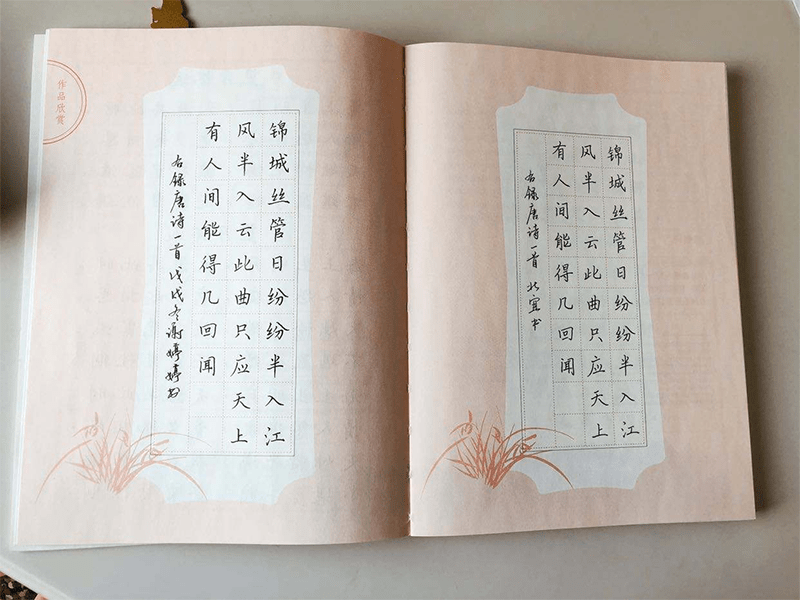 作品欣赏
锦城丝管日纷纷半入江
风半入云此曲只应天上
有人间能得几回闻
右录唐诗一首 戊戌冬谢婷婷书
锦城丝管日纷纷半入江
风半入云此曲只应天上
有人间能得几回闻
右录唐诗一首 北宜书